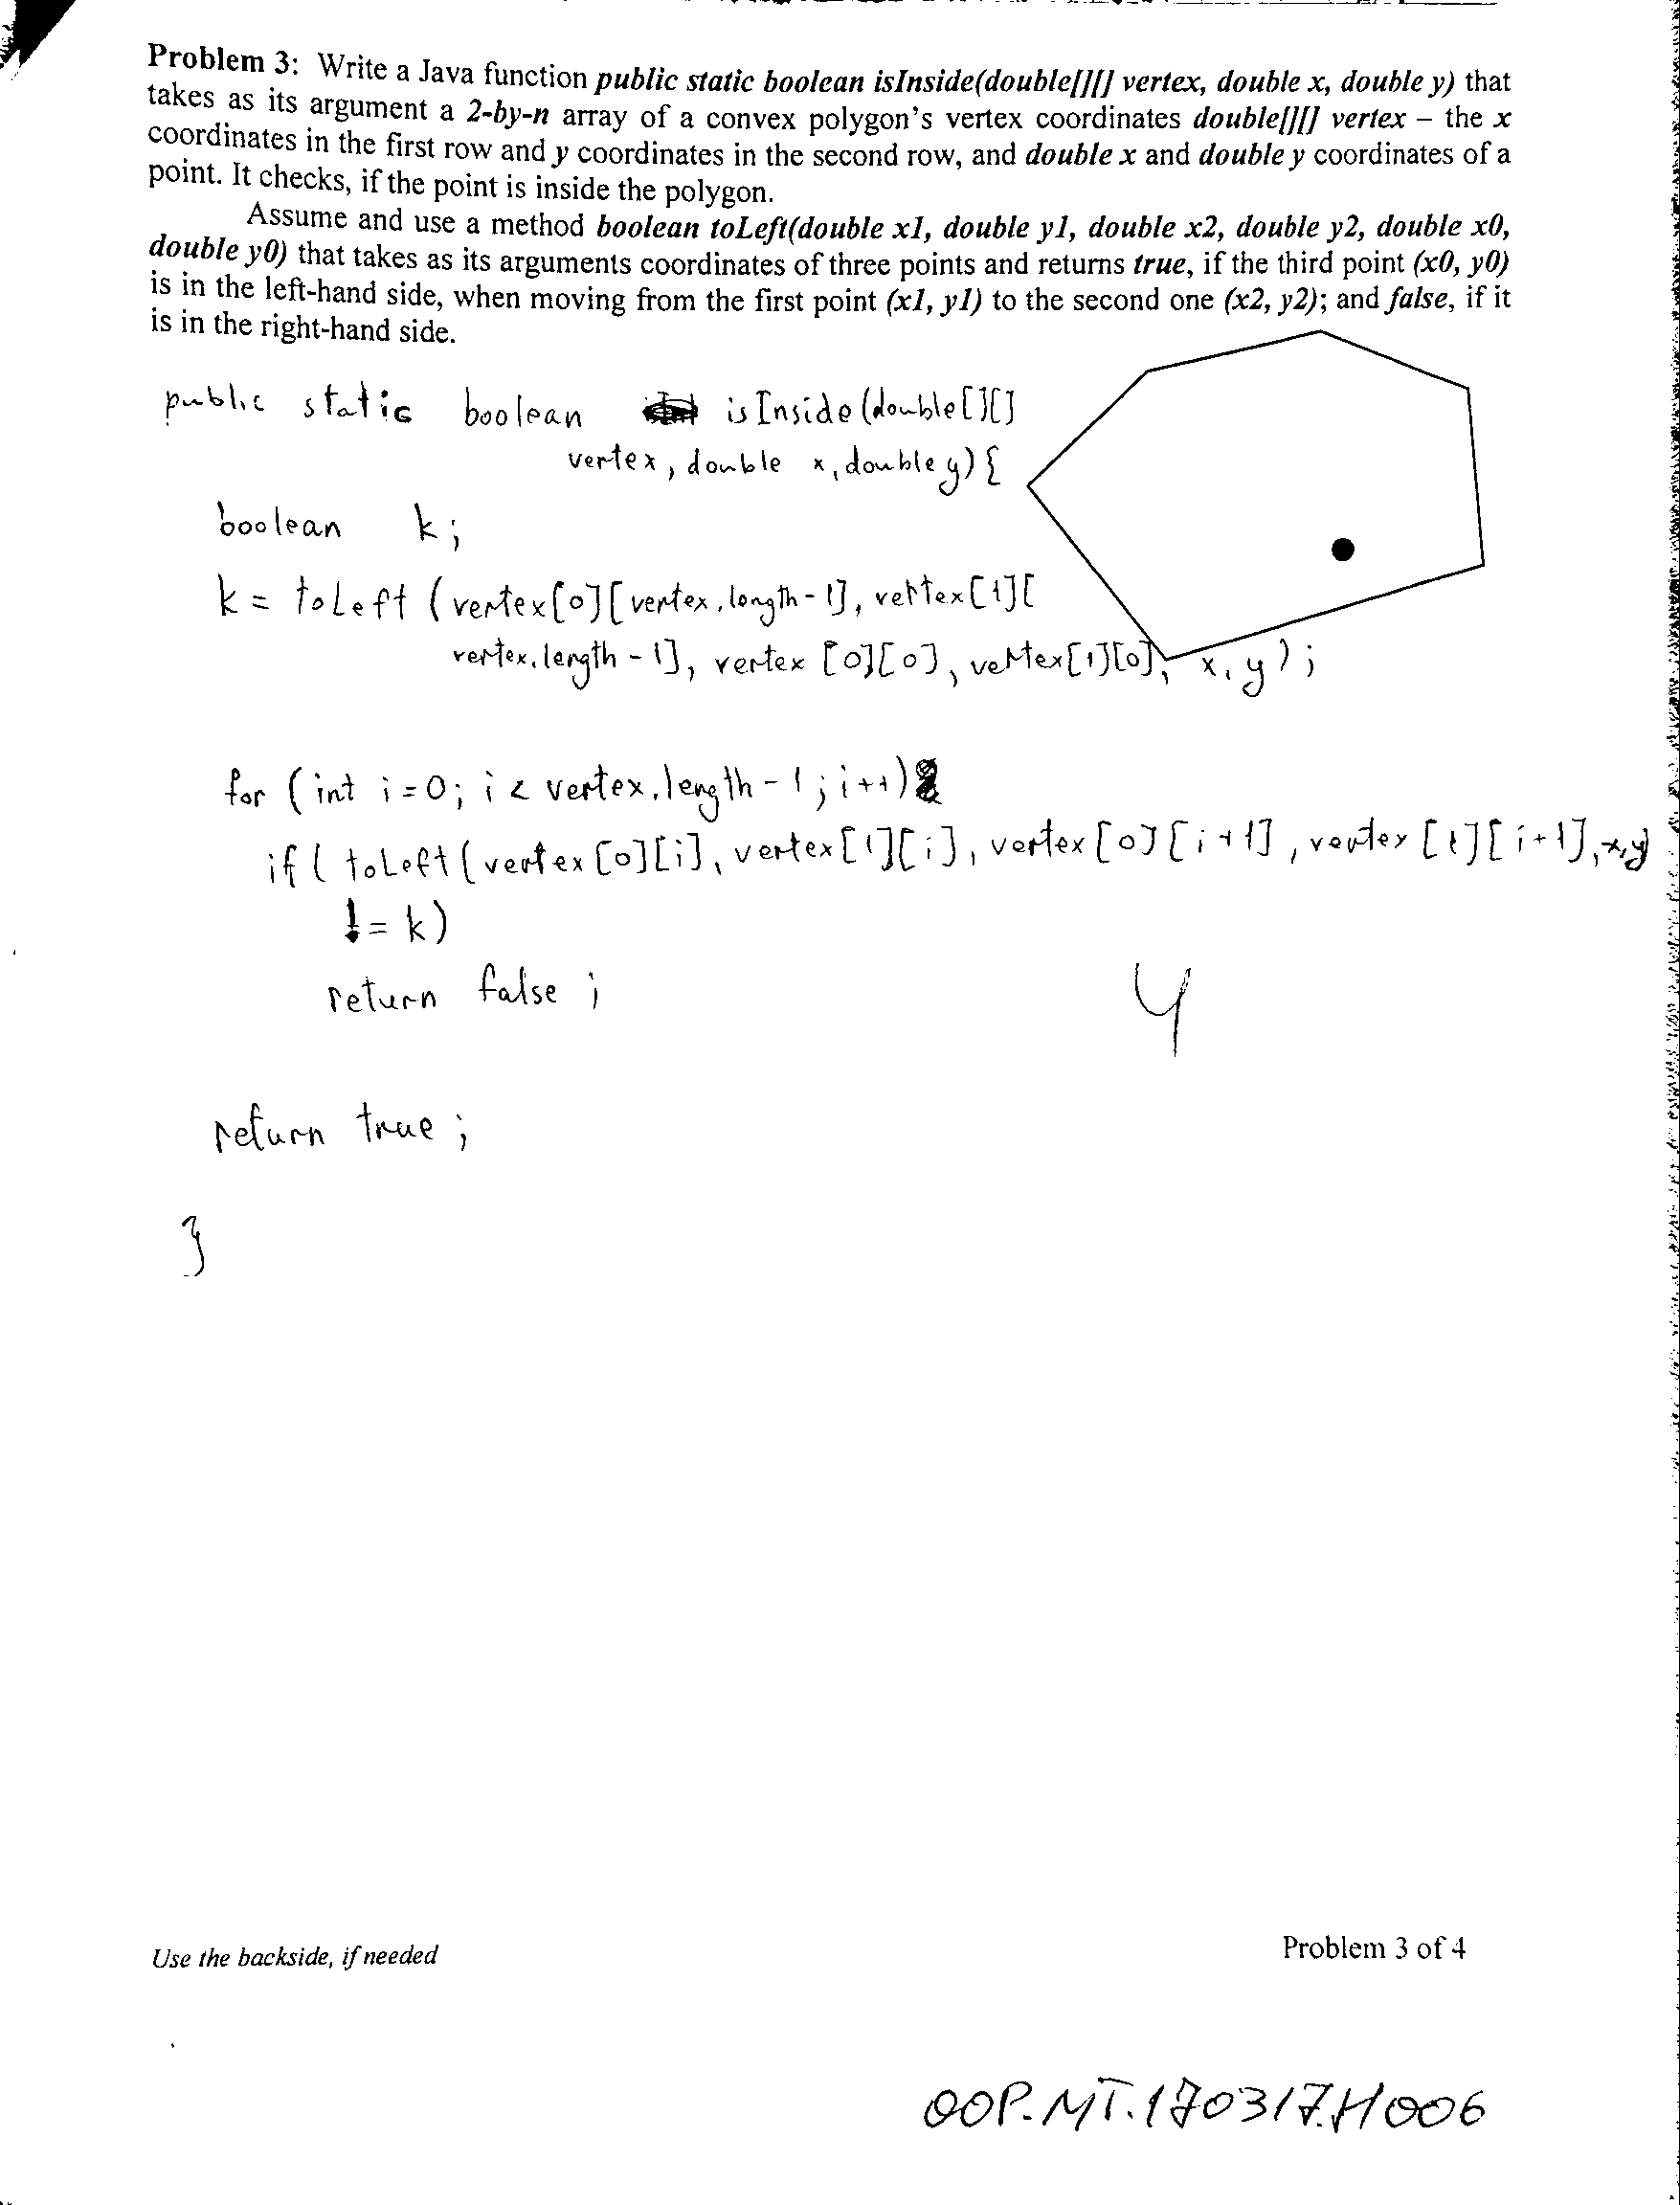 Problem 3: Write a Java function public static boolean isInside(double[][] vertex, double x, double y) that
takes as its argument a 2-by-n array of a convex polygon's vertex coordinates double[][] vertex – the x
coordinates in the first row and y coordinates in the second row, and double x and double y coordinates of a
point. It checks, if the point is inside the polygon.
Assume and use a method boolean toLeft(double x1, double y1, double x2, double y2, double x0,
double y0) that takes as its arguments coordinates of three points and returns true, if the third point (x0, y0)
is in the left-hand side, when moving from the first point (x1, y1) to the second one (x2, y2); and false, if it
is in the right-hand side.
public static boolean isInside(double[][]
vertex, double x, double y) {
boolean k;
k = toLeft (vertex[0][vertex.length-1], vertex[1][
vertex.length-1], vertex [0][0], vertex[1][0], x, y);
for (int i=0; i < vertex.length-1; i++)
if ( toLeft (vertex [0][i], vertex[1][i], vertex [0][i+1], vertex [1][i+1], x,y)
!= k)
return false ;
4
return true ;
}
Use the backside, if needed
Problem 3 of 4
OOP.MT.170317.H006